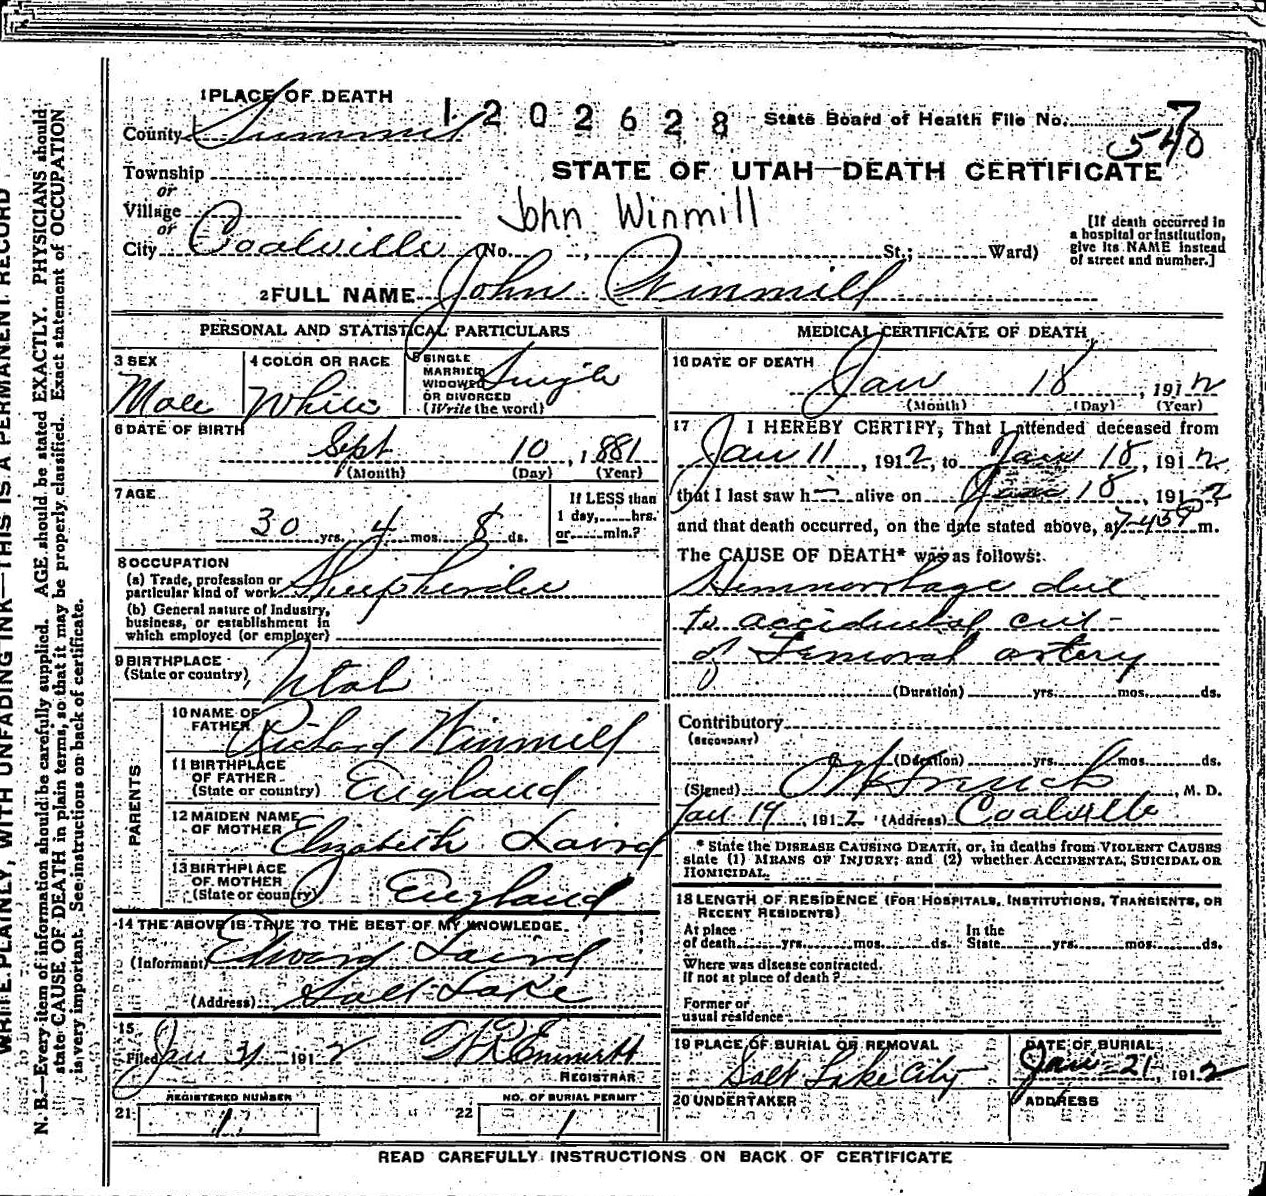 1 PLACE OF DEATH
1 2 0 2 6 2 8
State Board of Health File No. 7
540
County Summit
STATE OF UTAH—DEATH CERTIFICATE
Township
or
Village
or
John Winmill
City Coalville (No. , St.; Ward)
[If death occurred in
a hospital or institution,
give its NAME instead
of street and number.]
2 FULL NAME John Winmill
PERSONAL AND STATISTICAL PARTICULARS
3 SEX
Male
4 COLOR OR RACE
White
5 SINGLE
MARRIED
WIDOWED
OR DIVORCED
(Write the word)
Single
6 DATE OF BIRTH
Sept 10, 1881
(Month) (Day) (Year)
7 AGE
30 yrs. 4 mos. 8 ds.
If LESS than
1 day, hrs.
or min.?
8 OCCUPATION
(a) Trade, profession or
particular kind of work Sheepherder
(b) General nature of Industry,
business, or establishment in
which employed (or employer)
9 BIRTHPLACE
(State or country) Utah
PARENTS
10 NAME OF
FATHER Richard Winmill
11 BIRTHPLACE
OF FATHER
(State or country) England
12 MAIDEN NAME
OF MOTHER Elizabeth Laird
13 BIRTHPLACE
OF MOTHER
(State or country) England
14 THE ABOVE IS TRUE TO THE BEST OF MY KNOWLEDGE
(Informant) Edward Laird
(Address) Salt Lake
15
Filed Jan 31 1912 Emmett
REGISTRAR
REGISTERED NUMBER
21 1
NO. OF BURIAL PERMIT
22 1
MEDICAL CERTIFICATE OF DEATH
16 DATE OF DEATH
Jan 18, 1912
(Month) (Day) (Year)
17 I HEREBY CERTIFY, That I attended deceased from
Jan 11, 1912, to Jan 18, 1912
that I last saw h alive on Jan 18, 1912
and that death occurred, on the date stated above, at 7-45P m.
The CAUSE OF DEATH* was as follows:
Hemmorrhage due
to accidental cut
of Femoral artery
(Duration) yrs. mos. ds.
Contributory
(SECONDARY)
(Duration) yrs. mos. ds.
(Signed) M. D.
Jan 19, 1912 (Address) Coalville
* State the DISEASE CAUSING DEATH, or, in deaths from VIOLENT CAUSES
state (1) MEANS OF INJURY; and (2) whether ACCIDENTAL, SUICIDAL OR
HOMICIDAL.
18 LENGTH OF RESIDENCE (FOR HOSPITALS, INSTITUTIONS, TRANSIENTS, OR
RECENT RESIDENTS)
At place
of death yrs. mos. ds.
In the
State yrs. mos. ds.
Where was disease contracted,
If not at place of death?
Former or
usual residence
19 PLACE OF BURIAL OR REMOVAL
Salt Lake City
DATE OF BURIAL
Jan 21, 1912
20 UNDERTAKER
ADDRESS
READ CAREFULLY INSTRUCTIONS ON BACK OF CERTIFICATE
WRITE PLAINLY, WITH UNFADING INK—THIS IS A PERMANENT RECORD
N. B.—Every item of information should be carefully supplied. AGE should be stated EXACTLY. PHYSICIANS should
state CAUSE OF DEATH in plain terms, so that it may be properly classified. Exact statement of OCCUPATION
is very important. See instructions on back of certificate.